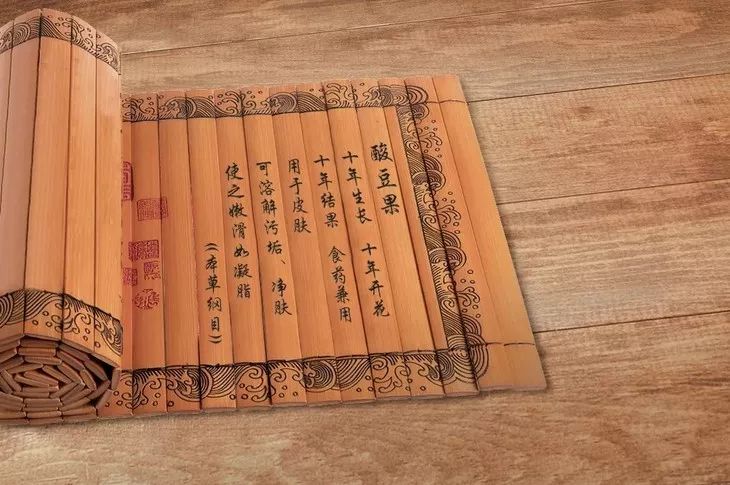 酸豆果
十年生长 十年开花
十年结果 食药兼用
用于皮肤
可溶解污垢、净肤
使之嫩滑如凝脂
《本草纲目》